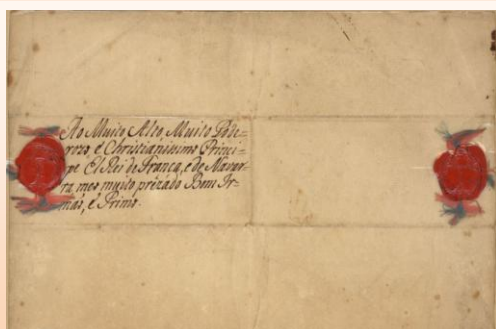 Ao Muito Alto, Muito Pode=
rozo, e Christianissimo Princi=
pe El Rei de Franca, e de Navar=
ra, meo muito prezado Bom Ir=
mao, e Primo.